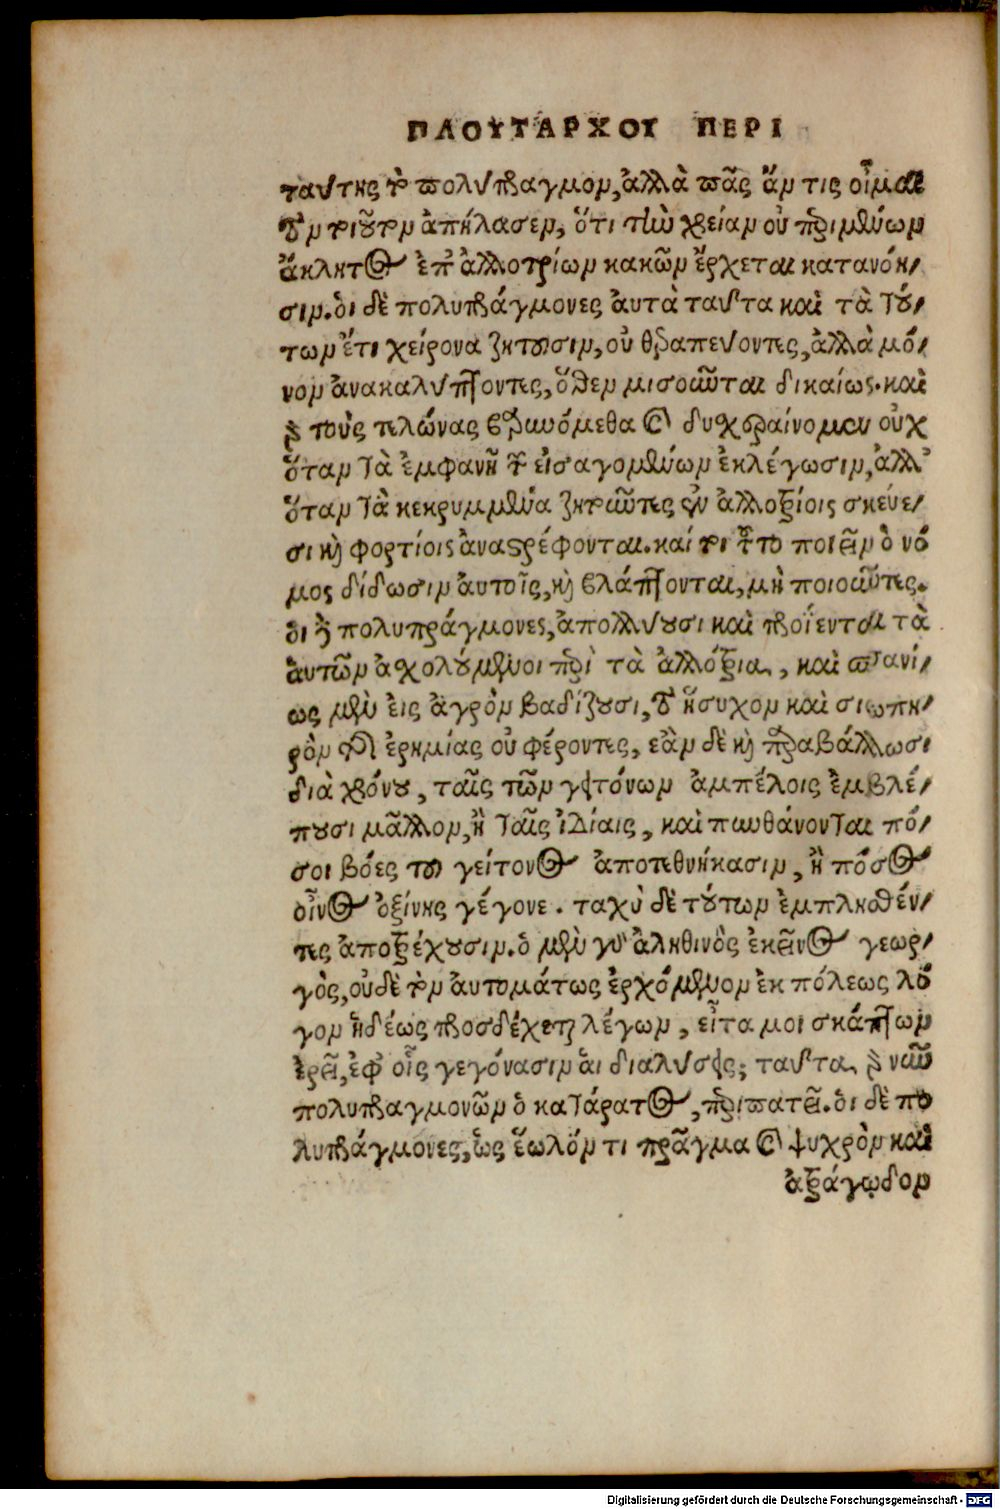 ΠΛΟΥΤΑΡΧΟΥ ΠΕΡΙ
ταύτης τ πολυπραγμον, ἀλλὰ πᾶς ἄν τις οἶμαι
τὸν τοιοῦτον ἀπήλασεν, ὅτι τὴν χρείαν οὐ περιμένων
ἄκλητος ἐπ' ἀλλοτρίων κακῶν ἔρχεται κατανόη/
σιν. ὁι δὲ πολυπράγμονες ἀυτὰ ταῦτα καὶ τὰ τού/
των ἔτι χείρονα ζητοῦσιν, οὐ θεραπεύοντες, ἀλλὰ μό/
νον ἀνακαλύπτοντες, ὅθεν μισοῦνται δικαίως. καὶ
γὰρ τοὺς τελώνας βαρυνόμεθα καὶ δυσχεραίνομεν οὐχ
ὅταν τὰ ἐμφανῆ τῶν εἰσαγομένων ἐκλέγωσιν, ἀλλ'
ὅταν τὰ κεκρυμμένα ζητοῦντες ἐν ἀλλοτρίοις σκεύε/
σι καὶ φορτίοις ἀναστρέφονται. καί τοι τοῦτο ποιεῖν ὁ νό
μος δίδωσιν ἀυτοῖς, καὶ βλάπτονται, μὴ ποιοῦντες.
ὁι δὲ πολυπράγμονες, ἀπολλύουσι καὶ προΐενται τὰ
ἁυτῶν ἀσχολούμενοι περὶ τὰ ἀλλότρια, καὶ σπανί/
ως μὲν εἰς ἀγρὸν βαδίζουσι, τὸ ἥσυχον καὶ σιωπη/
ρὸν τῆς ἐρημίας οὐ φέροντες, ἐὰν δὲ καὶ παραβάλλωσι
διὰ χρόνου, ταῖς τῶν γειτόνων ἀμπέλοις ἐμβλέ/
πουσι μᾶλλον, ἢ ταῖς ἰδίαις, καὶ πυνθάνονται πό/
σοι βόες τοῦ γείτονος ἀποτεθνήκασιν, ἢ πόσος
οἶνος ὀξίνης γέγονε. ταχὺ δὲ τούτων ἐμπλησθέν/
τες ἀποτρέχουσιν. ὁ μὲν γὰρ ἀληθινὸς ἐκεῖνος γεωρ/
γὸς, οὐδὲ τὸν ἀυτομάτως ἐρχόμενον ἐκ πόλεως λό
γον ἡδέως προσδέχεται λέγων, εἶτα μοι σκάπτων
ἐρεῖ, ἐφ' οἷς γεγόνασιν ἁι διαλύσεις; ταῦτα γὰρ νῦν
πολυπραγμονῶν ὁ κατάρατος, περιπατεῖ. ὁι δὲ πο
λυπράγμονες, ὡς ἕωλόν τι πρᾶγμα καὶ ψυχρὸν καὶ
ἀτράγῳδον
Digitalisierung gefördert durch die Deutsche Forschungsgemeinschaft - DFG